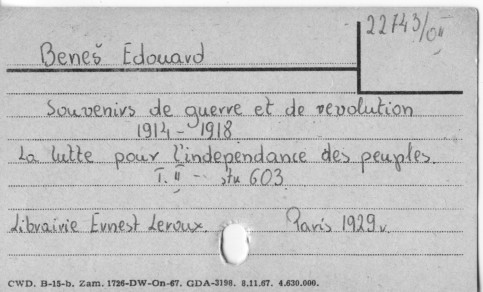 22743/oII
Beneš Edouard
Souvenirs de guerre et de revolution
1914-1918
La lutte pour l'independance des peuples.
T. II - stu 603
Librairie Ernest Leroux. Paris 1929.
CWD. B-15-b. Zam. 1726-DW-On-67. GDA-3198. 8.11.67. 4.630.000.